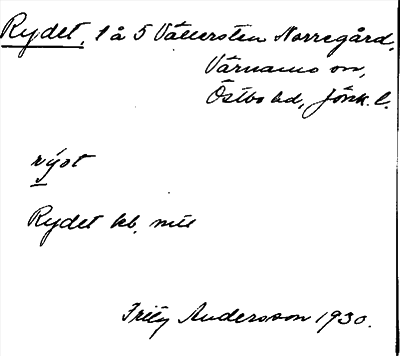 Rydet, 1 å 5 Vällersten Norregård,
Värnamo sn,
Östbo hd, Jönk. l.
rýət
Rydet kb. nill
Fritz Andersson 1930.